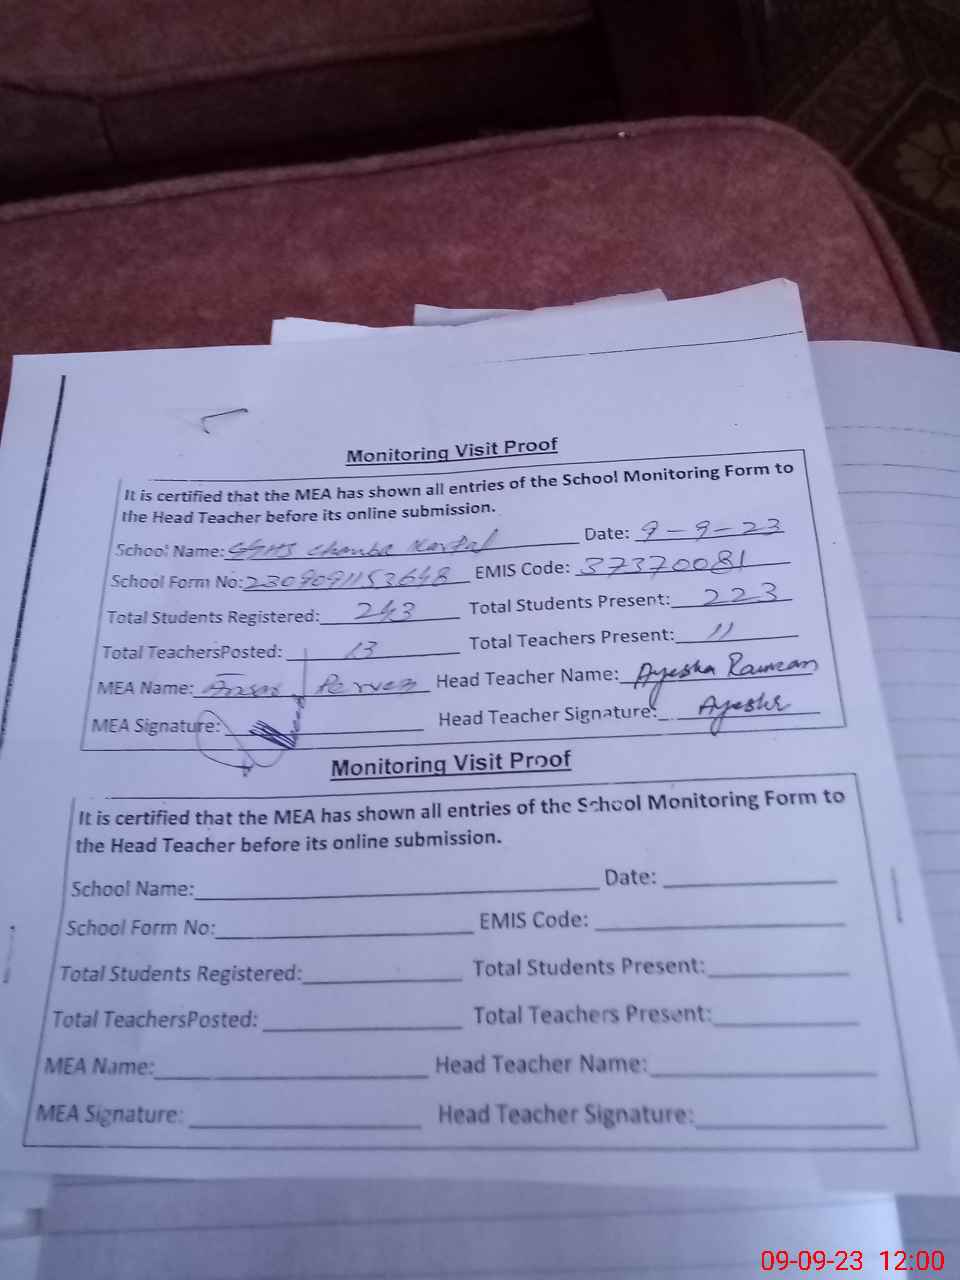 Monitoring Visit Proof
It is certified that the MEA has shown all entries of the School Monitoring Form to
the Head Teacher before its online submission.
School Name: GGHS Chamba Karpal Date: 9-9-23
School Form No: 2309091153648 EMIS Code: 37370081
Total Students Registered: 243 Total Students Present: 223
Total TeachersPosted: 13 Total Teachers Present: 11
MEA Name: Pervez Head Teacher Name: Ayesha
MEA Signature: Head Teacher Signature: Ayesha
Monitoring Visit Proof
It is certified that the MEA has shown all entries of the School Monitoring Form to
the Head Teacher before its online submission.
School Name: Date:
School Form No: EMIS Code:
Total Students Registered: Total Students Present:
Total TeachersPosted: Total Teachers Present:
MEA Name: Head Teacher Name:
MEA Signature: Head Teacher Signature:
09-09-23 12:00